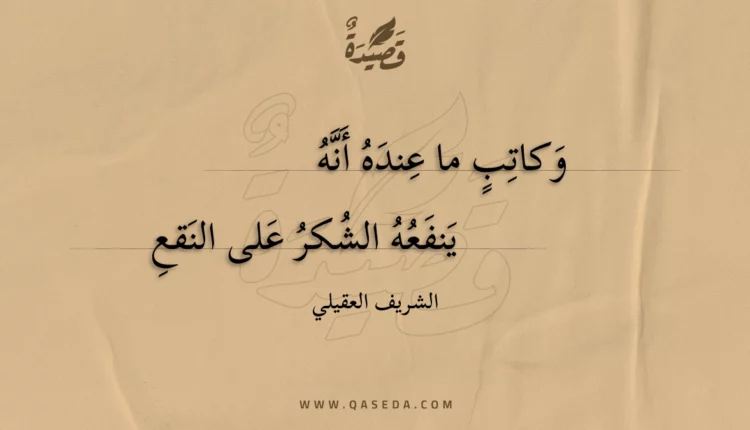 قَصِيْدَةٌ
وَكاتِبٍ ما عِندَهُ أَنَّهُ
يَنفَعُهُ الشُكرُ عَلى النَقعِ
الشريف العقيلي
WWW.QASEDA.COM